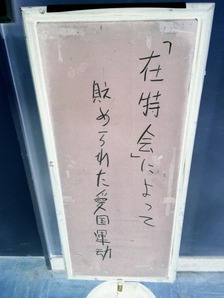 「在特会」によって
貯められた愛国運動